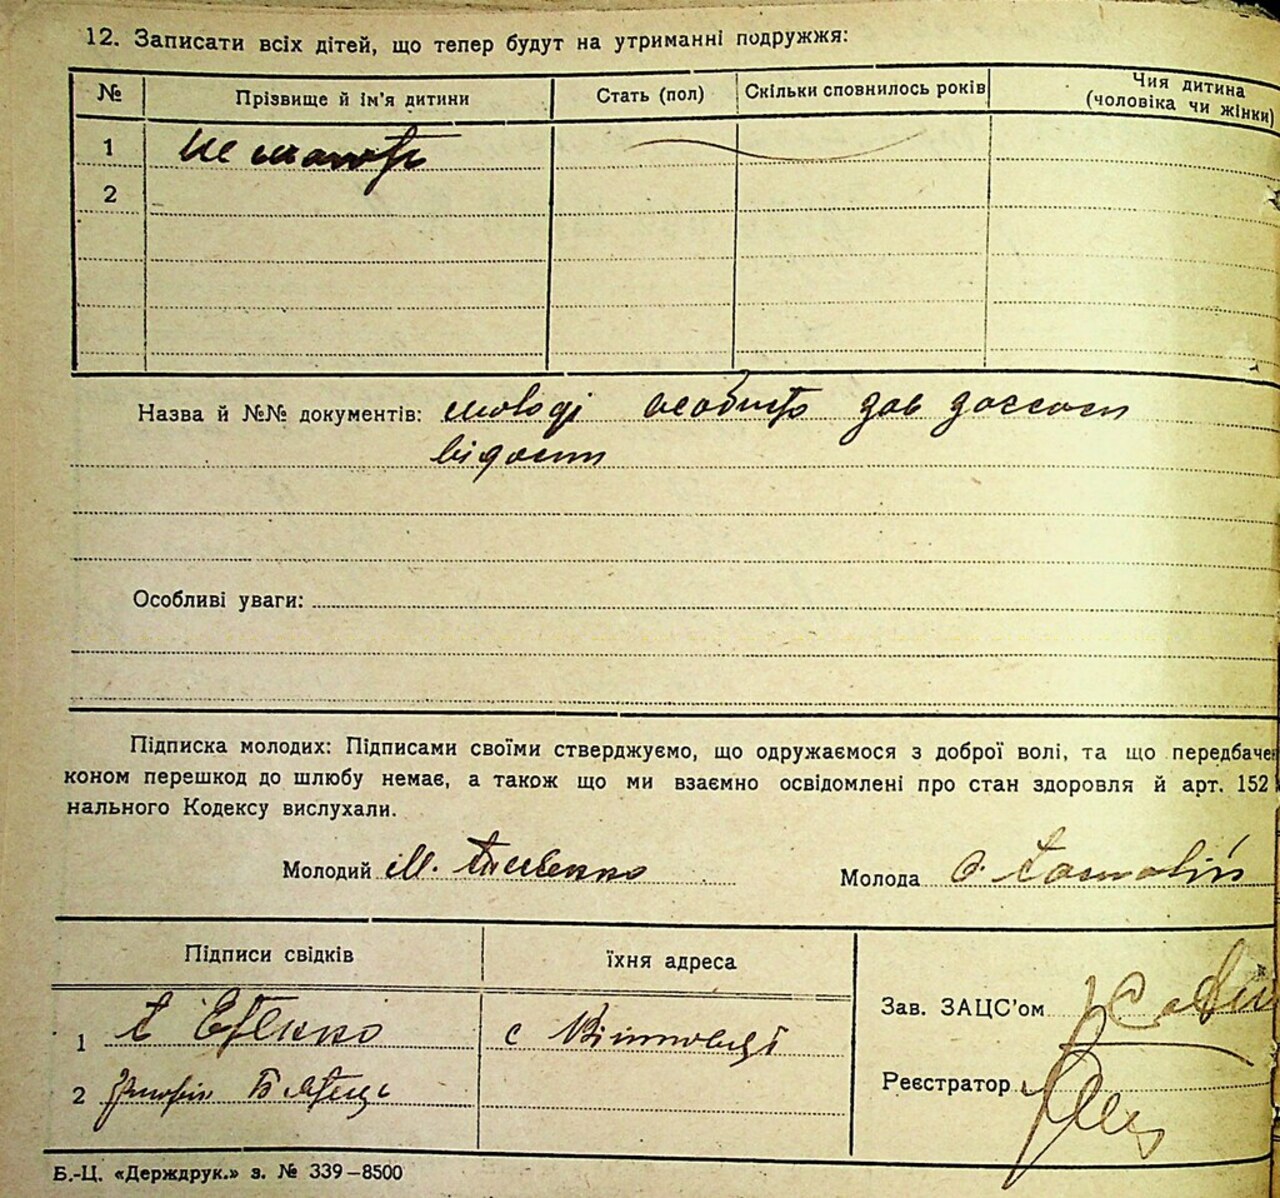 12. Записати всіх дітей, що тепер будут на утриманні подружжя:
№ Прізвище й ім'я дитини Стать (пол) Скільки сповнилось років Чия дитина (чоловіка чи жінки)
1 не мають
2
Назва й №№ документів: молоді особисто
відости
Особливі уваги:
Підписка молодих: Підписами своїми стверджуємо, що одружаємося з доброї волі, та що передбачен
коном перешкод до шлюбу немає, а також що ми взаємно освідомлені про стан здоровля й арт. 152
нального Кодексу вислухали.
Молодий М. Молода О.
Підписи свідків їхня адреса
Зав. ЗАЦС'ом
1 с
2
Реєстратор
Б.-Ц. «Держдрук.» з. № 339–8500